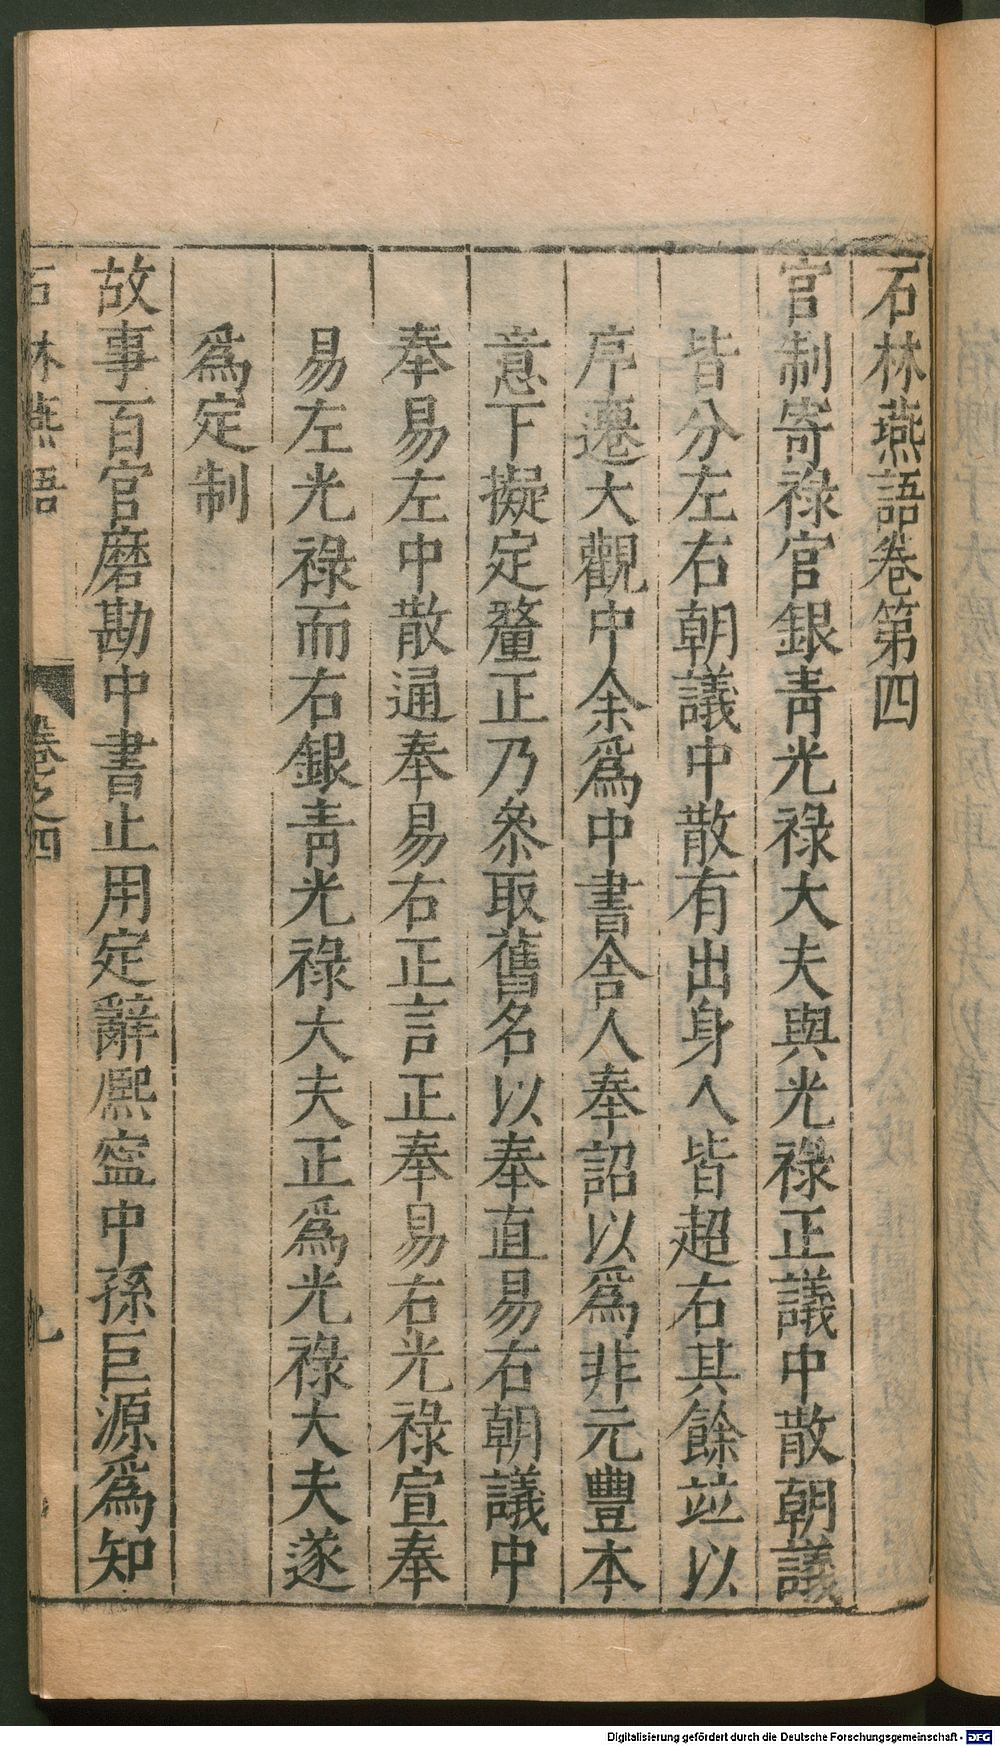 石林燕語卷第四
官制寄祿官銀青光祿大夫與光祿正議中散朝議
皆分左右朝議中散有出身人皆超右其餘竝以
序遷大觀中余爲中書舍人奉詔以爲非元豐本
意下擬定釐正乃叅取舊名以奉直易右朝議中
奉易左中散通奉易右正言正奉易右光祿宣奉
易左光祿而右銀青光祿大夫正爲光祿大夫遂
爲定制
故事百官磨勘中書止用定辭熈寧中孫巨源爲知
石林燕語
卷之四
Digitalisierung gefördert durch die Deutsche Forschungsgemeinschaft - DFG